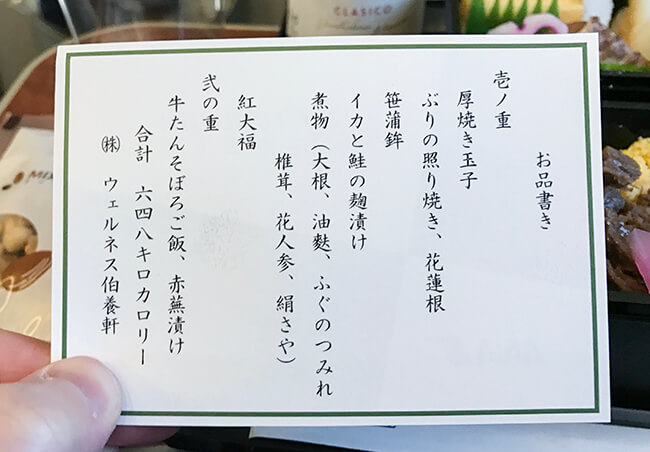 お品書き
壱ノ重
厚焼き玉子
ぶりの照り焼き、花蓮根
笹蒲鉾
イカと鮭の麹漬け
煮物(大根、油麩、ふぐのつみれ
椎茸、花人参、絹さや)
紅大福
弐の重
牛たんそぼろご飯、赤蕪漬け
合計 六四八キロカロリー
㈱ ウェルネス伯養軒
CLASICO